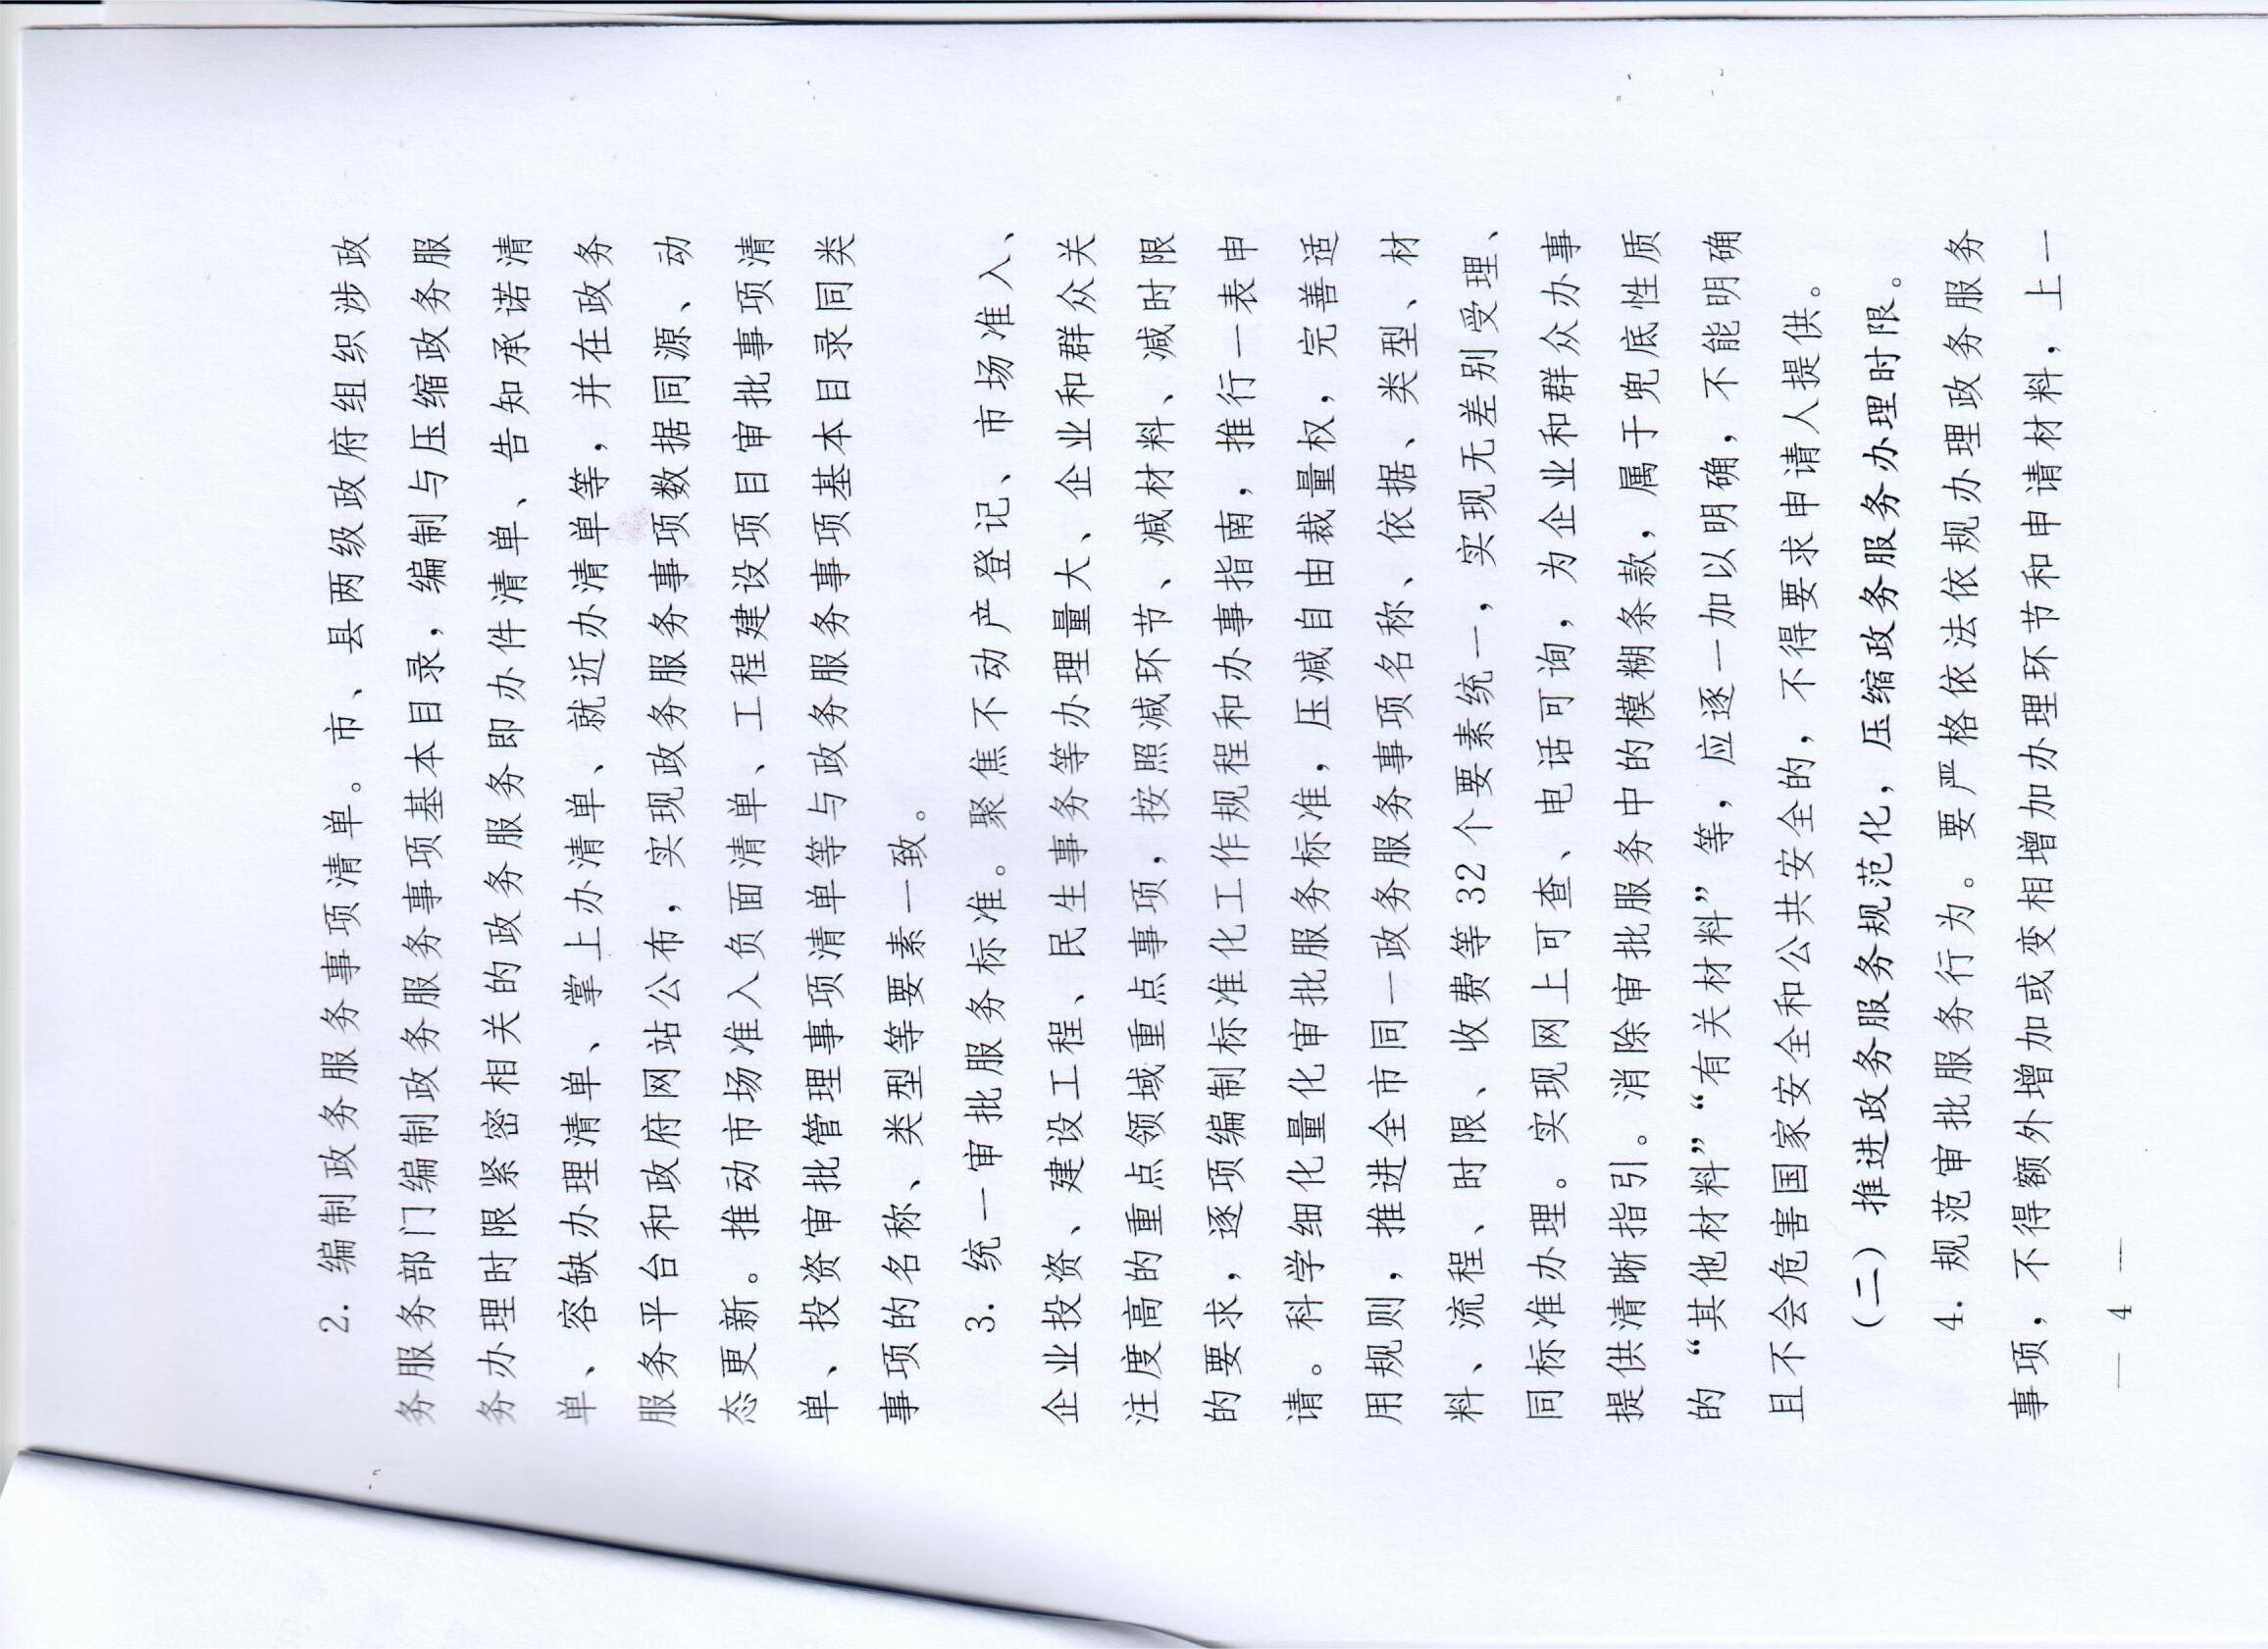 2. 编制政务服务事项清单。市、县两级政府组织涉政
务服务部门编制政务服务事项基本目录，编制与压缩政务服
务办理时限紧密相关的政务服务即办件清单、告知承诺清
单、容缺办理清单、掌上办清单、就近办清单等，并在政务
服务平台和政府网站公布，实现政务服务事项数据同源、动
态更新。推动市场准入负面清单、工程建设项目审批事项清
单、投资审批管理事项清单等与政务服务事项基本目录同类
事项的名称、类型等要素一致。
3. 统一审批服务标准。聚焦不动产登记、市场准入、
企业投资、建设工程、民生事务等办理量大、企业和群众关
注度高的重点领域重点事项，按照减环节、减材料、减时限
的要求，逐项编制标准化工作规程和办事指南，推行一表申
请。科学细化量化审批服务标准，压减自由裁量权，完善适
用规则，推进全市同一政务服务事项名称、依据、类型、材
料、流程、时限、收费等 32 个要素统一，实现无差别受理、
同标准办理。实现网上可查、电话可询，为企业和群众办事
提供清晰指引。消除审批服务中的模糊条款，属于兜底性质
的“其他材料”“有关材料”等，应逐一加以明确，不能明确
且不会危害国家安全和公共安全的，不得要求申请人提供。
（二）推进政务服务规范化，压缩政务服务办理时限。
4. 规范审批服务行为。要严格依法依规办理政务服务
事项，不得额外增加或变相增加办理环节和申请材料，上一
— 4 —